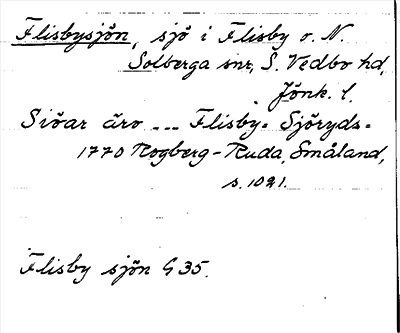 Flisbysjön, sjö i Flisby o. N.
Solberga snr, S. Vedbo hd,
Jönk. l.
Siöar äro --- Flisby- Sjöryds-
1770 Rogberg-Ruda, Småland,
s. 1021.
Flisby sjön G 35.